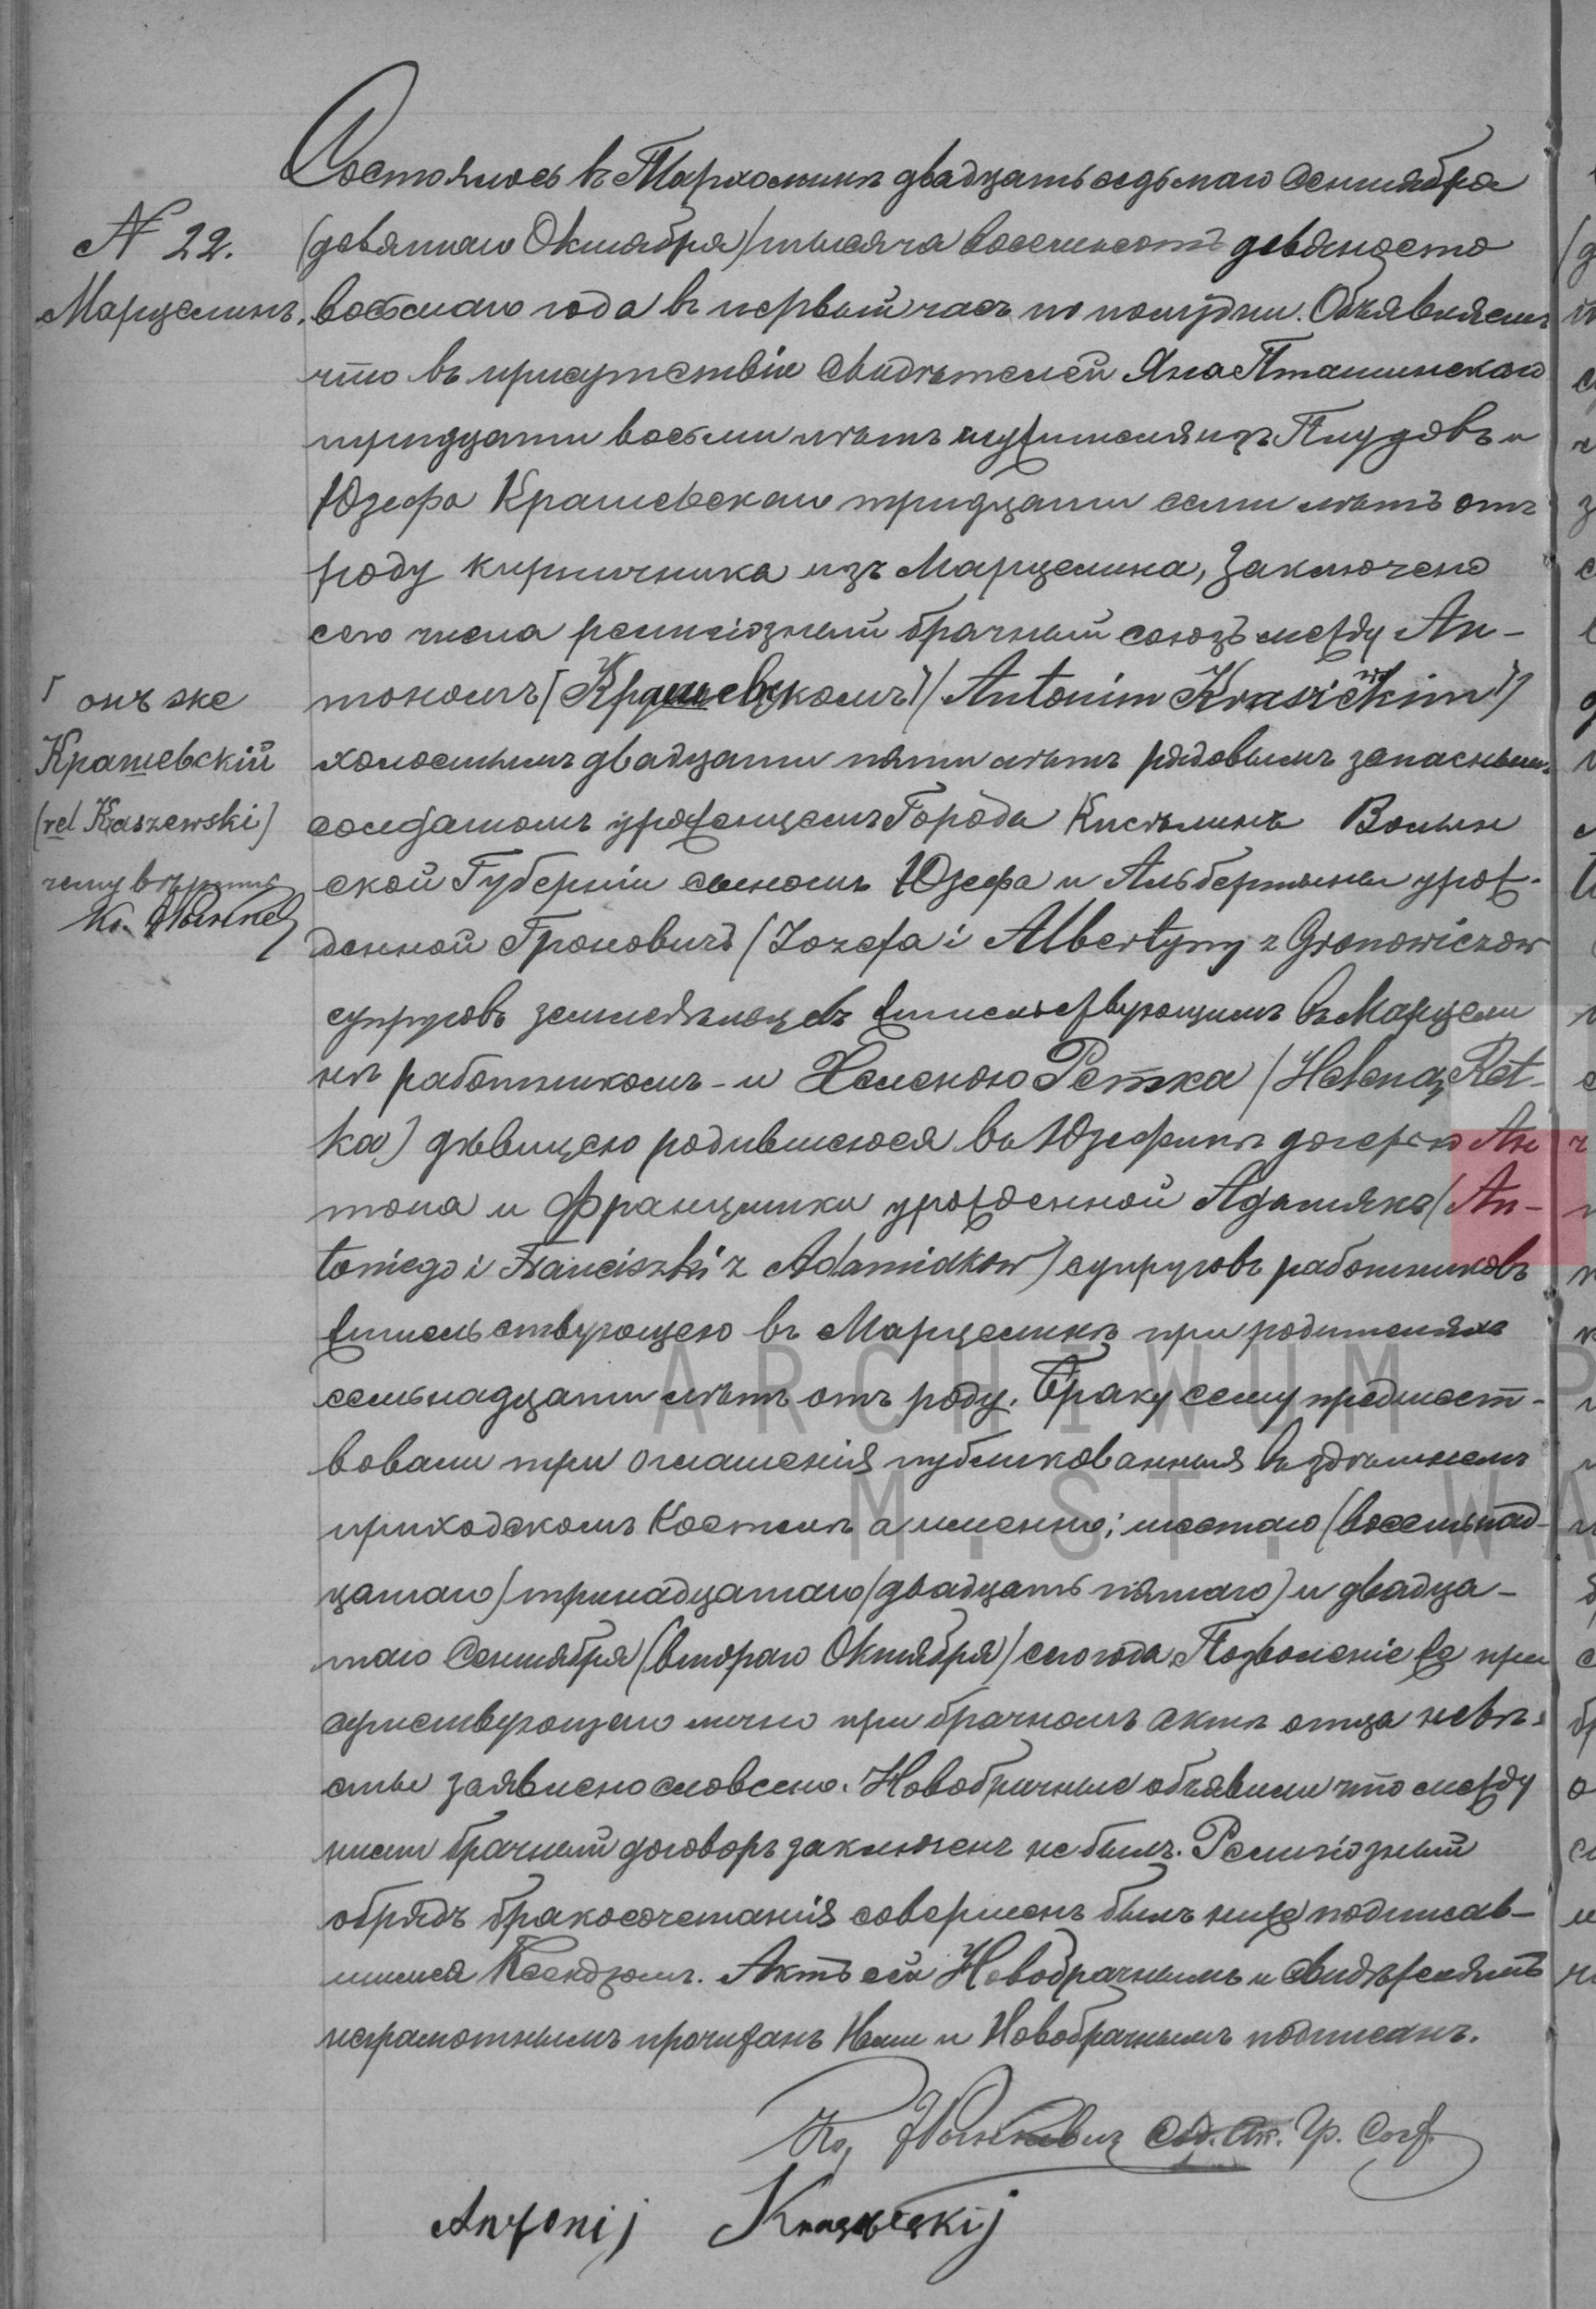 Состоялось въ Тархоминѣ двадцать седьмаго Сентября
№ 22.
Марцелинъ.
(девятаго Октября) тысяча восемьсотъ девяносто
восьмаго года въ первый часъ по полудни. Объявляемъ
что въ присутствіи свидѣтелей Яна Пташинскаго
тридцати восьми лѣтъ жителя изъ Плудовъ и
Юзефа Крашевскаго тридцати семи лѣтъ отъ
роду кирпичника изъ Марцелина, заключено
сего числа религіозный брачный союзъ между Ан-
онъ же
Крашевскій
(vel Kraszewski)
тономъ (Antonim
холостымъ двадцати пяти лѣтъ рядовымъ запаснымъ
солдатомъ уроженцемъ Города Киселинъ Волын
ской Губерніи сыномъ Юзефа и Альбертыны урож-
денной Гроновичъ (Jozefa i Albertyny z Gronowiczow
супруговъ земледѣльцевъ жительствующимъ въ Марцели
нѣ работникомъ - и Хеленою Ретка (Heleną Ret-
ka) дѣвицею родившеюся въ Юзефинѣ дочерью Ан
тона и Францишки урожденной Адамякъ (An-
toniego i Franciszki z Adamiakow) супруговъ работниковъ
жительствующею въ Марцелинѣ при родителяхъ
семьнадцати лѣтъ отъ роду. Браку сему предшест-
вовали три оглашенія публикованныя въ здѣшнемъ
приходскомъ Костелѣ а именно: шестаго (восемьнад-
цатаго) тринадцатаго (двадцать пятаго) и двадца-
таго Сентября (втораго Октября) сего года. Позволеніе ея при
сутствующаго лично при брачномъ актѣ отца невѣ-
сты заявлено словесно. Новобрачные объявили что между
ними брачный договоръ заключенъ не былъ. Религіозный
обрядъ бракосочетанія совершенъ былъ ниже подписав-
шимся Ксендзомъ. Актъ сей Новобрачнымъ и свидѣтелямъ
неграмотнымъ прочитанъ Нами и Новобрачнымъ подписанъ.
Antonij
ARCHIWUM P
M. ST. WA